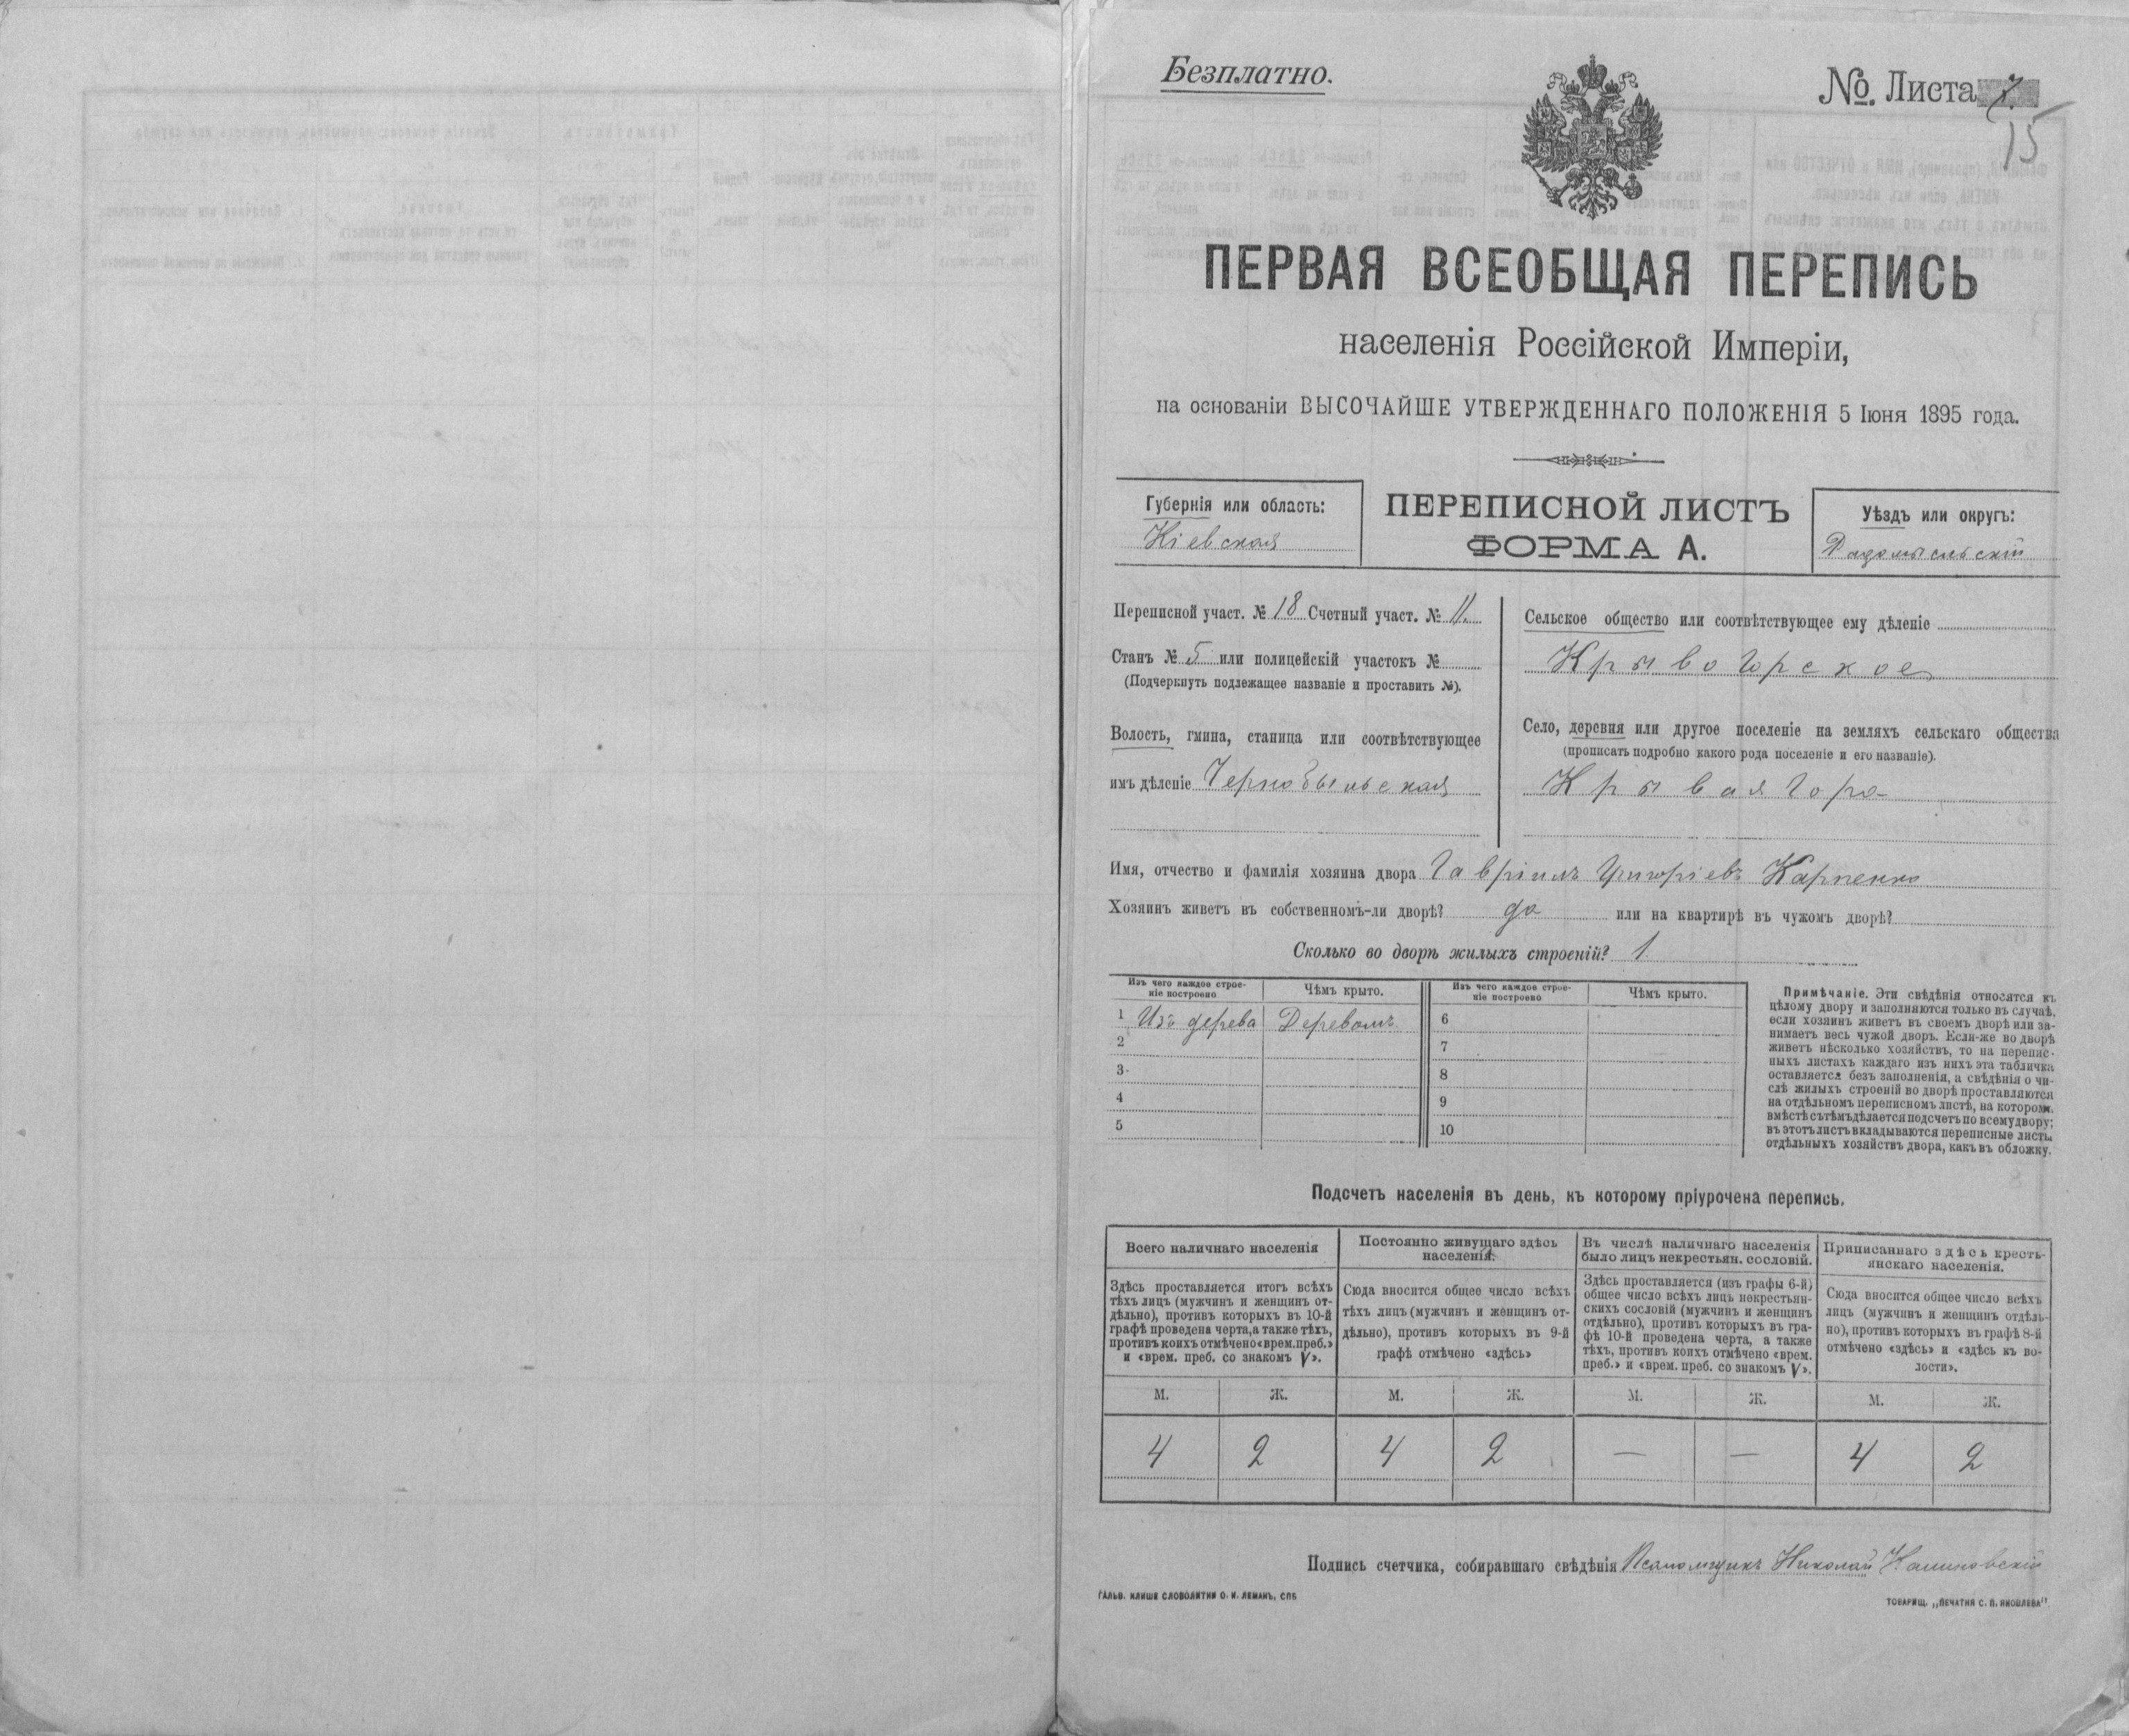 Безплатно.
№ Листа 7.
15
ПЕРВАЯ ВСЕОБЩАЯ ПЕРЕПИСЬ
населенія Россійской Имперіи,
на основаніи ВЫСОЧАЙШЕ УТВЕРЖДЕННАГО ПОЛОЖЕНІЯ 5 Іюня 1895 года.
Губернія или область:
Кіевская
ПЕРЕПИСНОЙ ЛИСТЪ
ФОРМА А.
Уѣздъ или округъ:
Радомысльскій
Переписной участ. № 18 Счетный участ. № 11.
Станъ № 5 или полицейскій участокъ №
(Подчеркнуть подлежащее названіе и проставить №).
Волость, гмина, станица или соотвѣтствующее
имъ дѣленіе Чернобыльская
Сельское общество или соотвѣтствующее ему дѣленіе
Крывогорское
Село, деревня или другое поселеніе на земляхъ сельскаго общества
(прописать подробно какого рода поселеніе и его названіе).
Крывая Гора
Имя, отчество и фамилія хозяина двора Гавріилъ Григоріевъ Карпенко
Хозяинъ живетъ въ собственномъ-ли дворѣ? да или на квартирѣ въ чужомъ дворѣ?
Сколько во дворѣ жилыхъ строеній? 1.
Изъ чего каждое строе-
ніе построено
Чѣмъ крыто.
Изъ чего каждое строе-
ніе построено
Чѣмъ крыто.
1 Изъ дерева Деревомъ
2
3
4
5
6
7
8
9
10
Примѣчаніе. Эти свѣдѣнія относятся къ
цѣлому двору и заполняются только въ случаѣ,
если хозяинъ живетъ въ своемъ дворѣ или за-
нимаетъ весь чужой дворъ. Если-же во дворѣ
живетъ нѣсколько хозяйствъ, то на перепис-
ныхъ листахъ каждаго изъ нихъ эта табличка
оставляется безъ заполненія, а свѣдѣнія о чи-
слѣ жилыхъ строеній во дворѣ проставляются
на отдѣльномъ переписномъ листѣ, на которомъ
вмѣстѣ съ тѣмъ дѣлается подсчетъ по всему двору;
въ этотъ листъ вкладываются переписные листы
отдѣльныхъ хозяйствъ двора, какъ въ обложку.
Подсчетъ населенія въ день, къ которому пріурочена перепись.
Всего наличнаго населенія
Постоянно живущаго здѣсь
населенія.
Въ числѣ наличнаго населенія
было лицъ некрестьян. сословій.
Приписаннаго здѣсь кресть-
янскаго населенія.
Здѣсь проставляется итогъ всѣхъ
тѣхъ лицъ (мужчинъ и женщинъ от-
дѣльно), противъ которыхъ въ 10-й
графѣ проведена черта, а также тѣхъ,
противъ коихъ отмѣчено «врем. преб.»
и «врем. преб. со знакомъ V».
Сюда вносится общее число всѣхъ
тѣхъ лицъ (мужчинъ и женщинъ от-
дѣльно), противъ которыхъ въ 9-й
графѣ отмѣчено «здѣсь»
Здѣсь проставляется (изъ графы 6-й)
общее число всѣхъ лицъ некрестьян-
скихъ сословій (мужчинъ и женщинъ
отдѣльно), противъ которыхъ въ гра-
фѣ 10-й проведена черта, а также
тѣхъ, противъ коихъ отмѣчено «врем.
преб.» и «врем. преб. со знакомъ V».
Сюда вносится общее число всѣхъ
лицъ (мужчинъ и женщинъ отдѣль-
но), противъ которыхъ въ графѣ 8-й
отмѣчено «здѣсь» и «здѣсь къ во-
лости».
М. Ж. М. Ж. М. Ж. М. Ж.
4 2 4 2 — — 4 2
Подпись счетчика, собиравшаго свѣдѣнія Псаломщикъ Николай Калиновскій
ГАЛЬВ. КЛИШЕ СЛОВОЛИТНИ О. И. ЛЕМАНЪ, СПБ
ТОВАРИЩ. „ПЕЧАТНЯ С. П. ЯКОВЛЕВА".